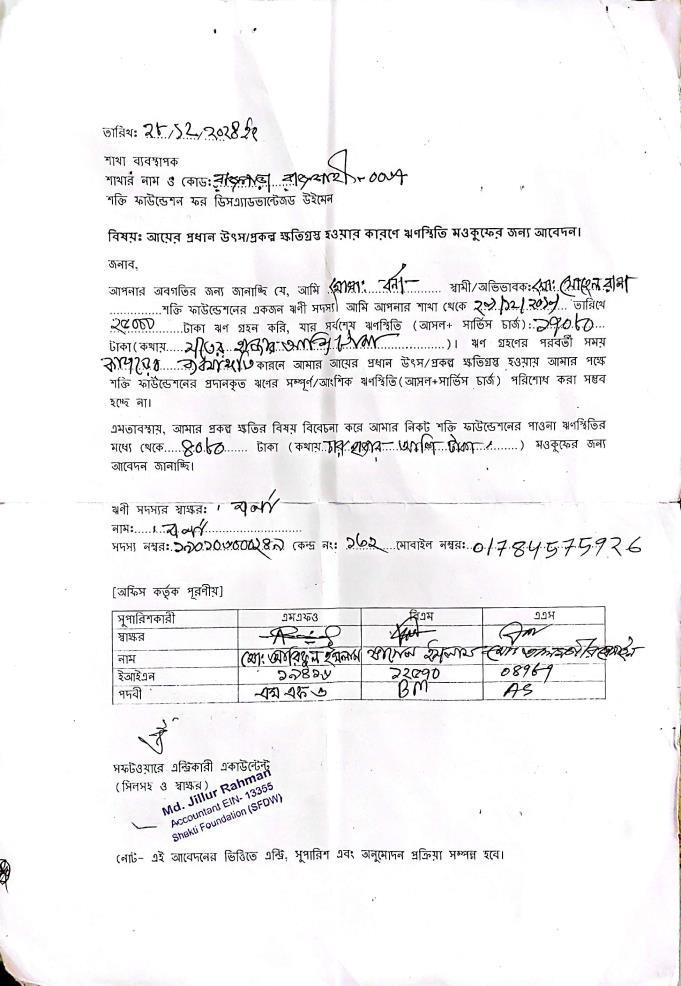 তারিখ: ২৮/১২/২০২৪ ইং
শাখা ব্যবস্থাপক
শাখার নাম ও কোড:
শক্তি ফাউন্ডেশন ফর ডিসএ্যাডভান্টেজড উইমেন
বিষয়: আয়ের প্রধান উৎস/প্রকল্প ক্ষতিগ্রস্ত হওয়ার কারণে ঋণস্থিতি মওকুফের জন্য আবেদন।
জনাব,
আপনার অবগতির জন্য জানাচ্ছি যে, আমি মোসা: বর্না স্বামী/অভিভাবক: মো: সোহেল রানা
শক্তি ফাউন্ডেশনের একজন ঋণী সদস্য। আমি আপনার শাখা থেকে তারিখে
২৫০০০ টাকা ঋণ গ্রহন করি, যার সর্বশেষ ঋণস্থিতি (আসল+ সার্ভিস চার্জ): ১৭০৮০
টাকা(কথায় হাজার আশি টাকা)। ঋণ গ্রহণের পরবর্তী সময়
কারনে আমার আয়ের প্রধান উৎস/প্রকল্প ক্ষতিগ্রস্ত হওয়ায় আমার পক্ষে
শক্তি ফাউন্ডেশনের প্রদানকৃত ঋণের সম্পূর্ণ/আংশিক ঋণস্থিতি(আসল+সার্ভিস চার্জ) পরিশোধ করা সম্ভব
হচ্ছে না।
এমতাবস্থায়, আমার প্রকল্প ক্ষতির বিষয় বিবেচনা করে আমার নিকট শক্তি ফাউন্ডেশনের পাওনা ঋণস্থিতির
মধ্যে থেকে ৪০৮০ টাকা (কথায় চার হাজার আশি টাকা) মওকুফের জন্য
আবেদন জানাচ্ছি।
ঋণী সদস্যর স্বাক্ষর: বর্না
নাম: বর্না
সদস্য নম্বর: কেন্দ্র নং: ১৬২ মোবাইল নম্বর: 01784575926
[অফিস কর্তৃক পূরণীয়]
সুপারিশকারী এমএফও বিএম এএস
স্বাক্ষর
নাম মো: আরিফুল ইসলাম ইসলাম
ইআইএন ১২৫৭০ 08969
পদবী এম এফ ও BM AS
সফটওয়ারে এন্ট্রিকারী একাউন্টেন্ট
(সিলসহ ও স্বাক্ষর)
Md. Jillur Rahman
Accountant EIN- 13355
Shakti Foundation (SFDW)
নোট- এই আবেদনের ভিত্তিতে এন্ট্রি, সুপারিশ এবং অনুমোদন প্রক্রিয়া সম্পন্ন হবে।